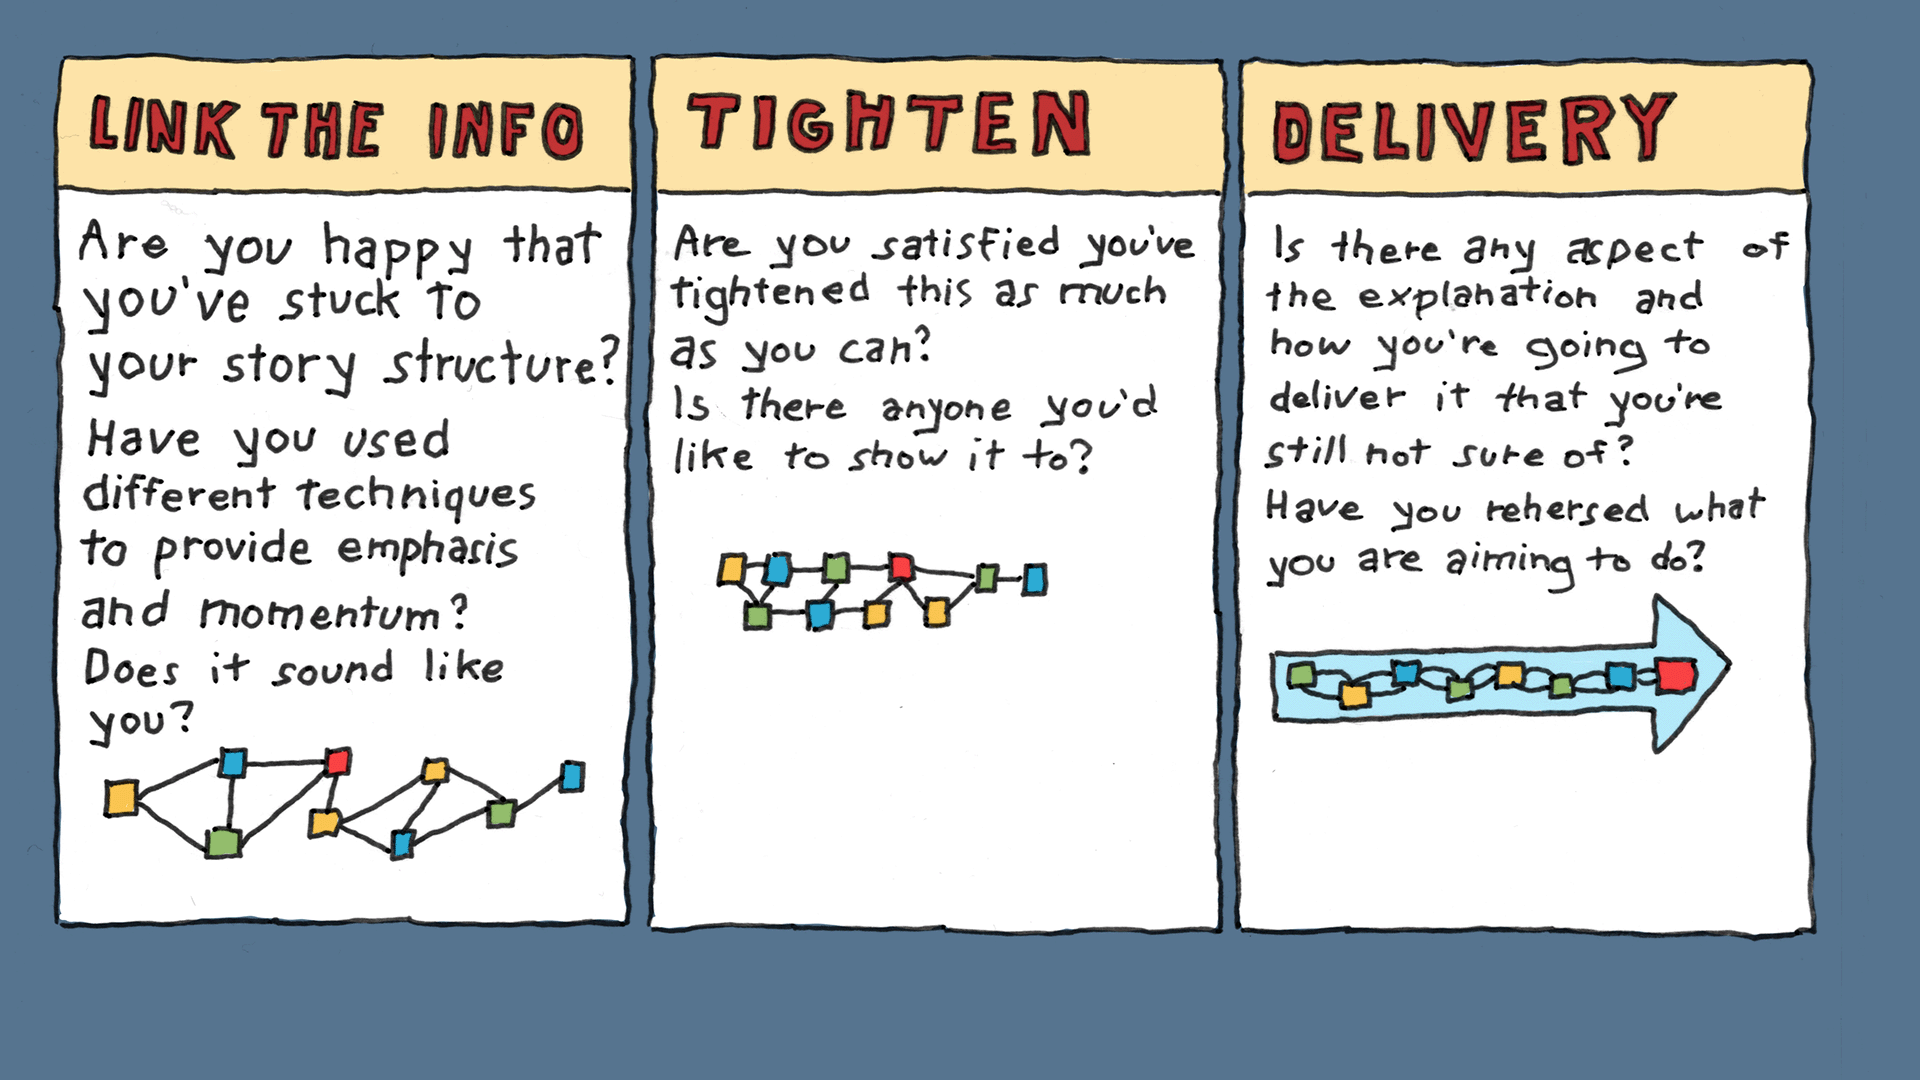 LINK THE INFO
Are you happy that
you've stuck to
your story structure?
Have you used
different techniques
to provide emphasis
and momentum?
Does it sound like
you?
TIGHTEN
Are you satisfied you've
tightened this as much
as you can?
Is there anyone you'd
like to show it to?
DELIVERY
Is there any aspect of
the explanation and
how you're going to
deliver it that you're
still not sure of?
Have you rehersed what
you are aiming to do?